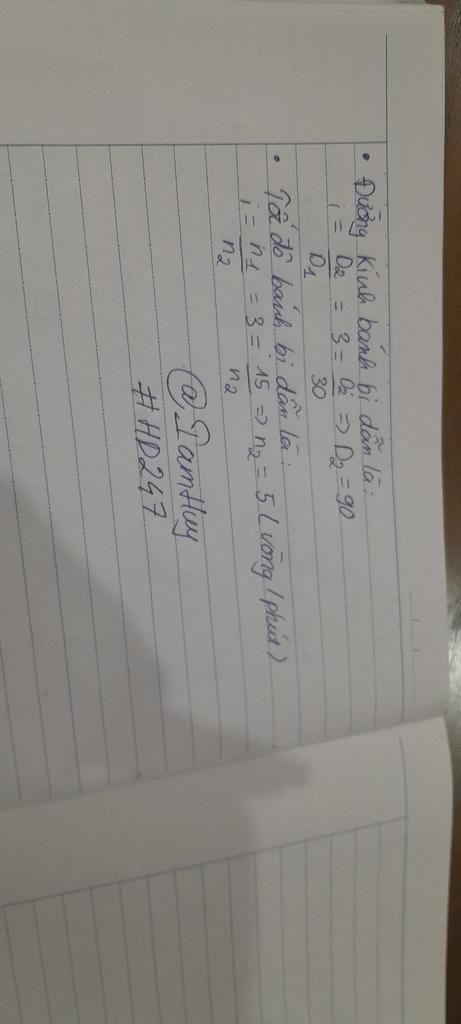 • Đường kính bánh bị dẫn là:
i = D2/D1 = 3 = D2/30 => D2 = 90
• Tốc độ bánh bị dẫn là:
i = n1/n2 = 3 = 15/n2 => n2 = 5 (vòng/phút)
@IamHuy
#HD247